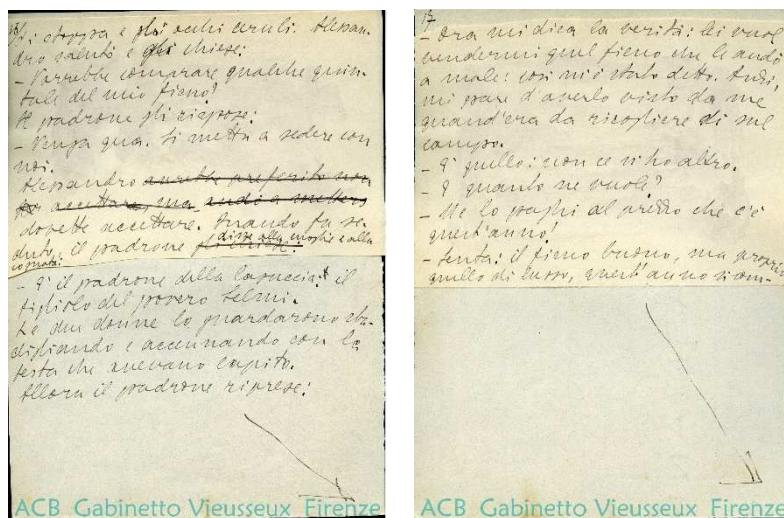 di stoppa e gli occhi ceruli. Alessan-
dro salutò e gli chiese:
- Vorrebbe comprare qualche quin-
tale del mio fieno?
Il padrone gli rispose:
- Venga qua. Si metta a sedere con
noi.
Alessandro avrebbe preferito non
accettare, ma andò a mettersi
dovette accettare. Quando fu se-
duto, il padrone gli chiese: disse alla moglie e alla
cognata:
- È il padrone della Casuccia: il
figliolo del povero Selmi.
Le due donne lo guardarono sba-
digliando e accennando con la
testa che avevano capito.
Allora il padrone riprese:
ACB Gabinetto Vieusseux Firenze
17
- Ora mi dica la verità: lei vuol
vendermi quel fieno che le andò
a male: così mi è stato detto. Anzi,
mi pare d'averlo visto da me
quand'era da ricogliere di sul
campo.
- È quello: non ce n'ho altro.
- E quanto ne vuole?
- Me lo paghi al prezzo che c'è
quest'anno!
- Senta: il fieno buono, ma proprio
quello di lusso, quest'anno si com-
ACB Gabinetto Vieusseux Firenze